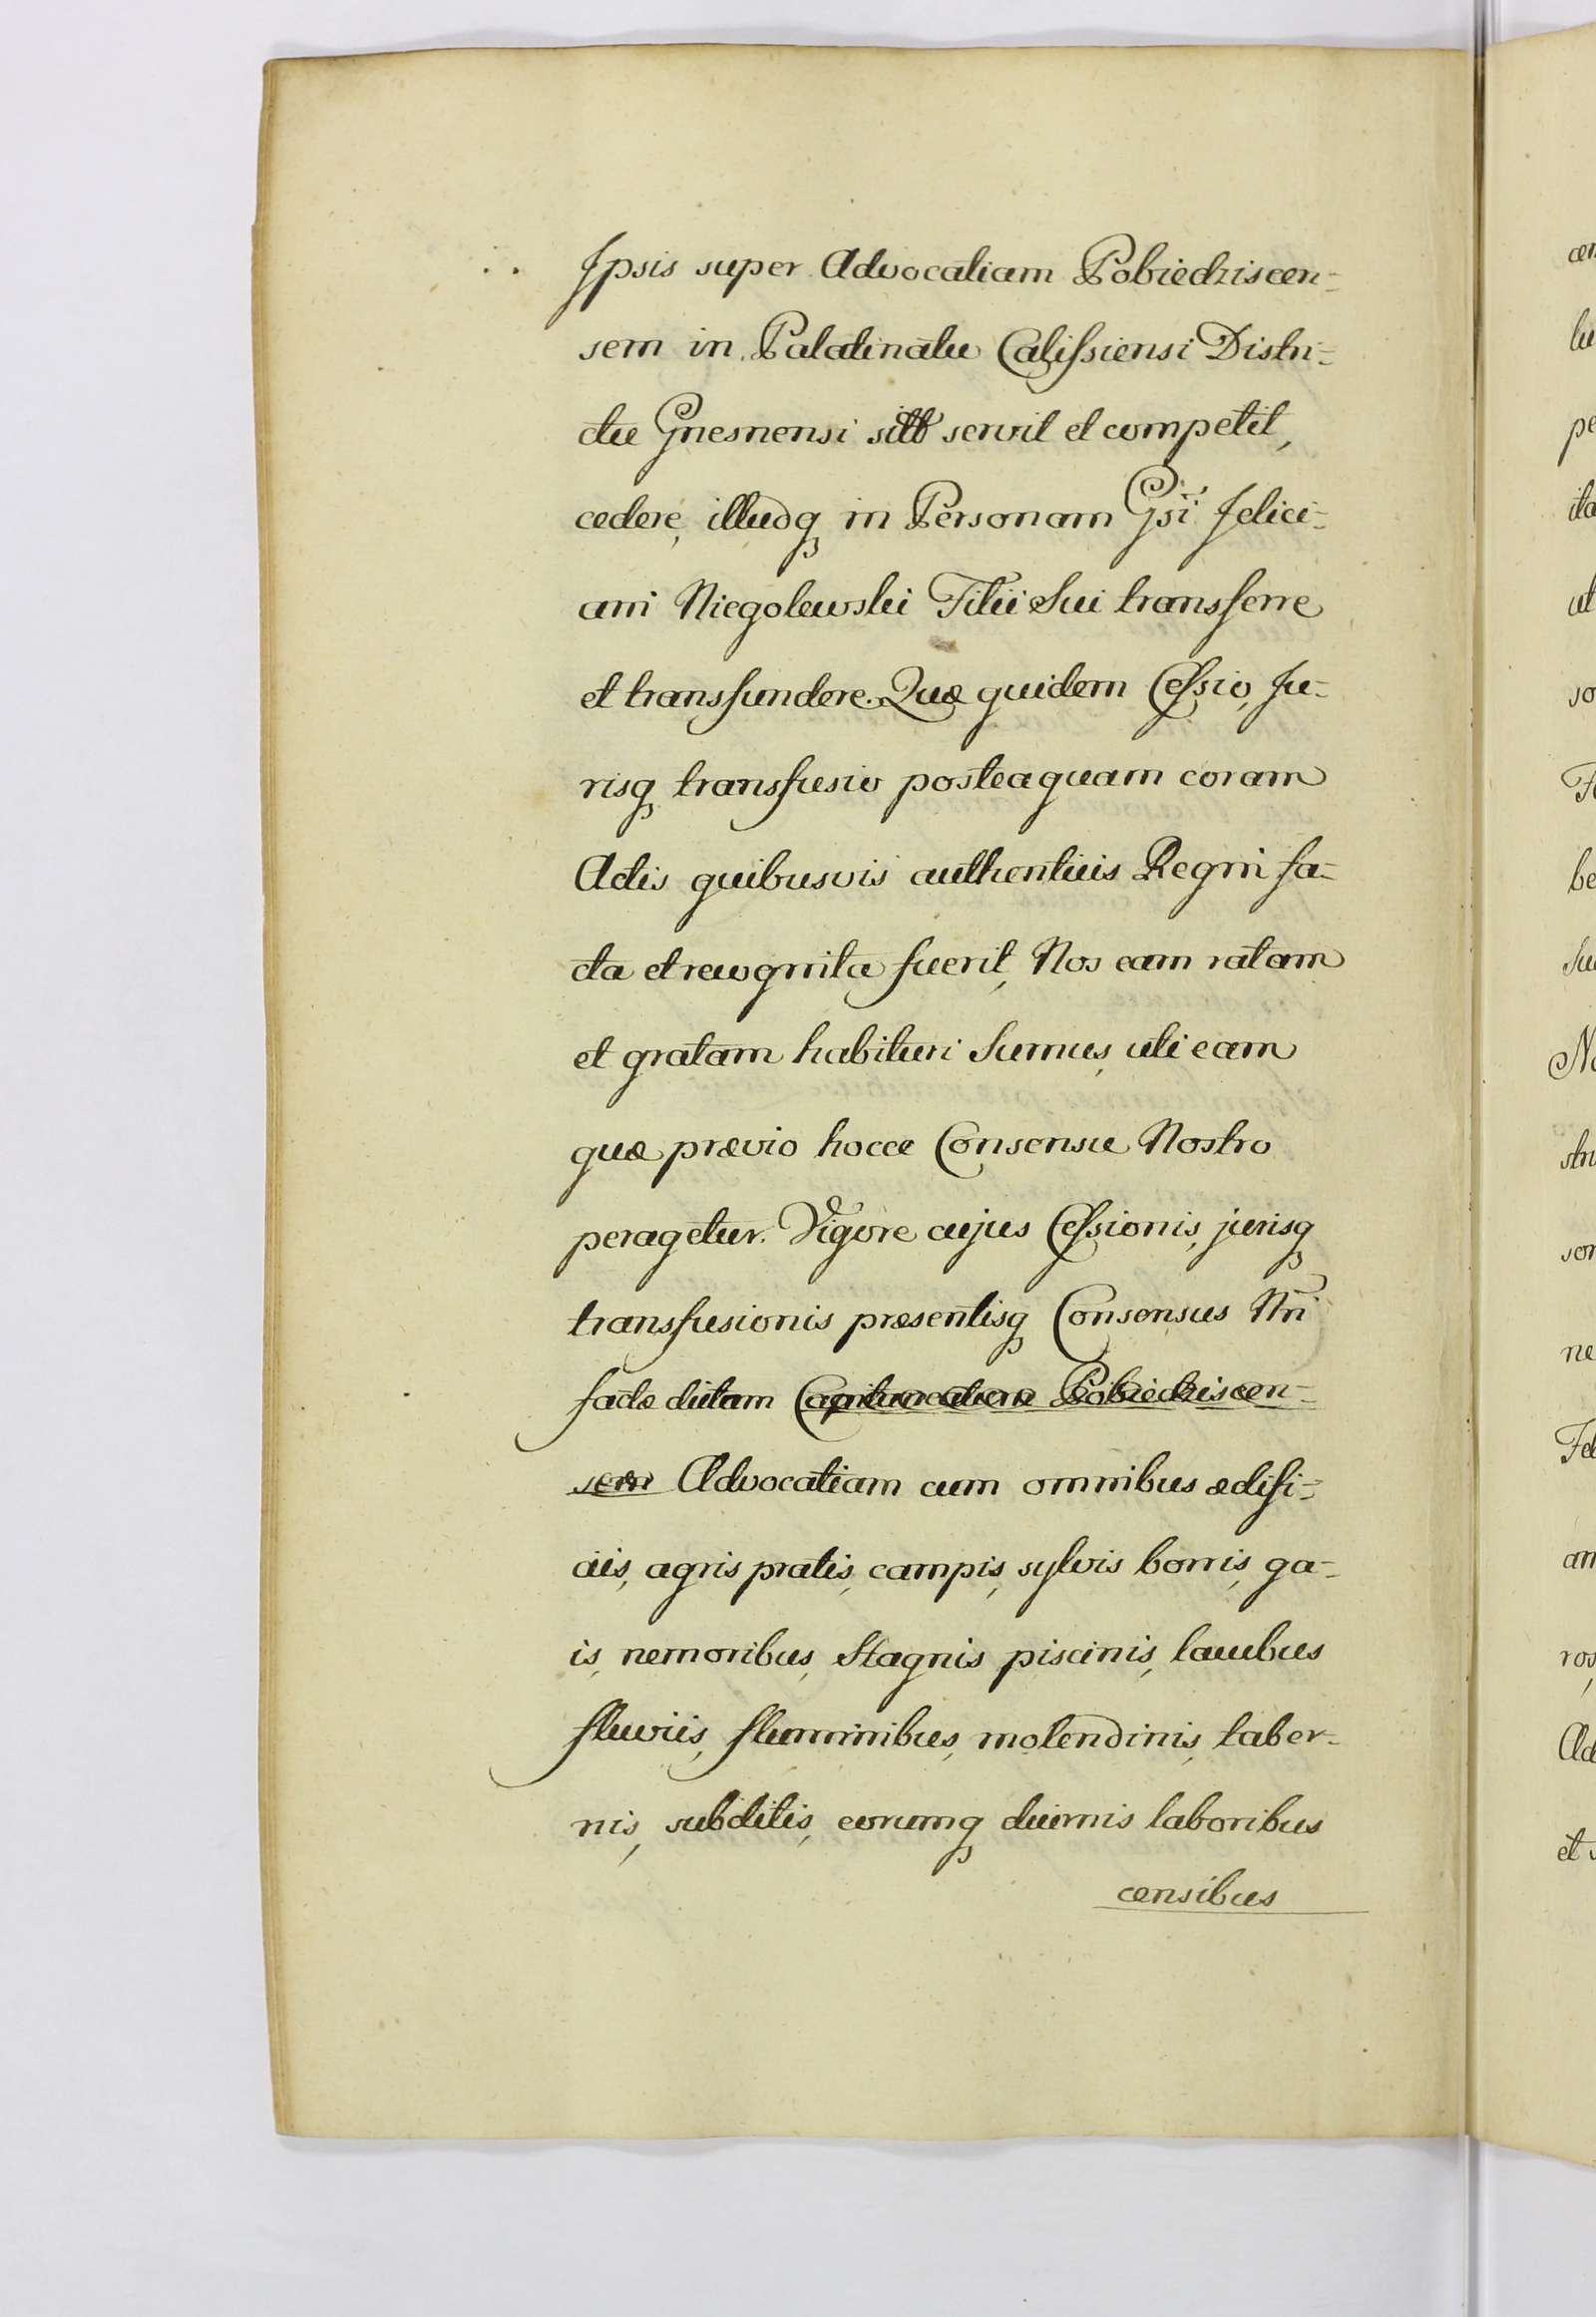 Ipsis super Advocatiam Pobiedziscen-
sem in Palatinatu Calissiensi Distri-
ctu Gnesnensi servit et competit,
cedere, illudq in Personam Gsi Felici-
ani Niegolewski Filii Sui transferre
et transfundere. Quæ quidem Cessio, Ju-
risq transfusio posteaquam coram
Actis quibusvis authenticis Regni fa-
cta et recognita fuerit, Nos eam ratam
et gratam habituri Sumus, uti eam
quæ prævio hocce Consensu Nostro
peragetur. Vigore cujus Cessionis, jurisq
transfusionis præsentisq Consensus Nri
factæ dictam Pobiedziscen-
sem Advocatiam cum omnibus ædifi-
ciis, agris pratis, campis, sylvis borris, ga-
is, nemoribus, Stagnis piscinis, lacubus
fluviis, fluminibus, molendinis, taber-
nis, subditis, eorumq diurnis laboribus
censibus